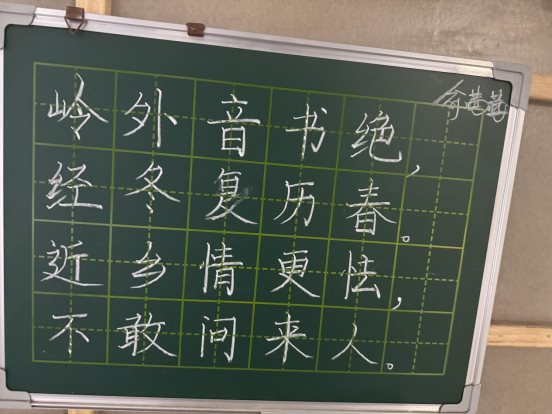 俞莲莲
岭外音书绝，
经冬复历春。
近乡情更怯，
不敢问来人。